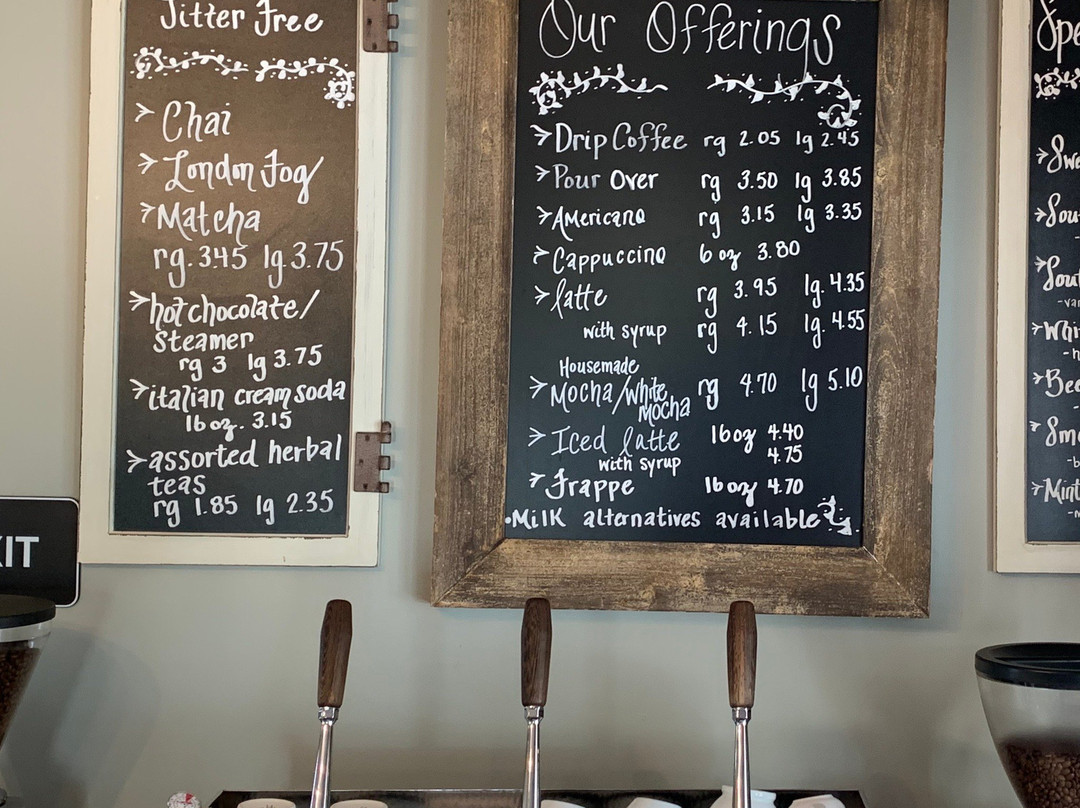 Jitter Free
Chai
London Fog
Matcha
rg. 3.45 lg 3.75
hot chocolate/
Steamer
rg 3 lg 3.75
italian cream soda
16 oz. 3.15
assorted herbal
teas
rg 1.85 lg 2.35
Our Offerings
Drip Coffee rg 2.05 lg 2.45
Pour Over rg 3.50 lg 3.85
Americano rg 3.15 lg 3.35
Cappuccino 6 oz 3.80
latte rg 3.95 lg. 4.35
with syrup rg 4.15 lg. 4.55
Housemade
Mocha/White rg 4.70 lg 5.10
Mocha
Iced latte 16 oz 4.40
with syrup 4.75
Frappe 16 oz 4.70
•Milk alternatives available